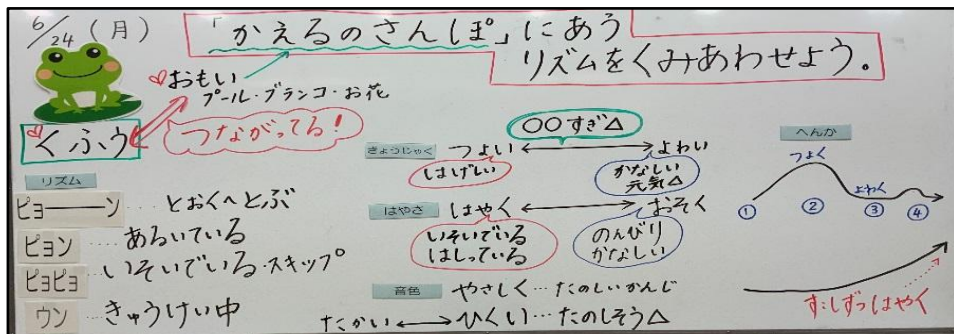 6/24（月）
「かえるのさんぽ」にあう
リズムをくみあわせよう。
おもい
プール・ブランコ・お花
くふう
つながってる！
リズム
ピョ――ン ‥‥ とおくへとぶ
ピョン ‥‥ あるいている
ピョピョ ‥‥ いそいでいる・スキップ
ウン ‥‥ きゅうけい中
〇〇すぎ△
きょうじゃく つよい ⟷ よわい
はげしい
かなしい
元気△
はやさ はやく ⟷ おそく
いそいでいる
はしっている
のんびり
かなしい
音色 やさしく‥‥たのしいかんじ
たかい⟷ひくい‥‥たのしそう△
へんか
つよく
よわく
① ② ③ ④
すこしずつはやく